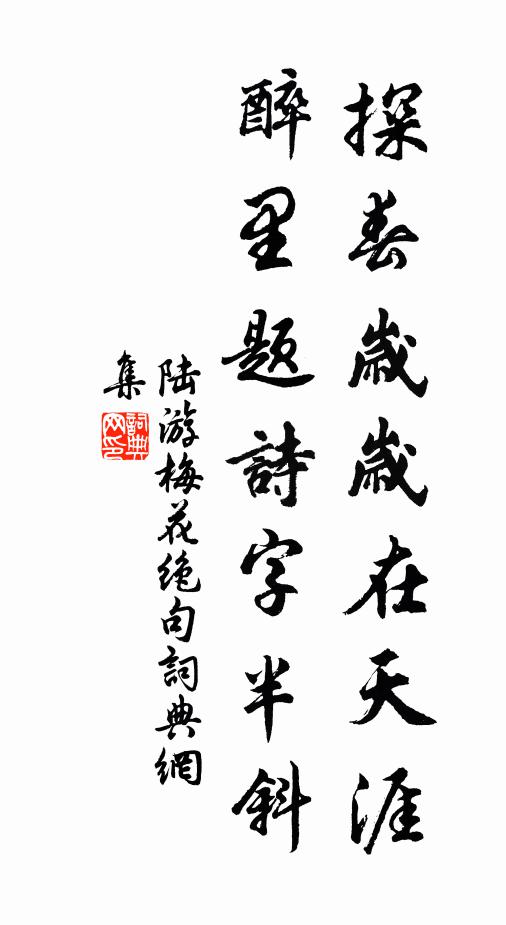 探春歲歲在天涯
醉里題詩字半斜
陸游梅花绝句詞典網
集
詞典
网印